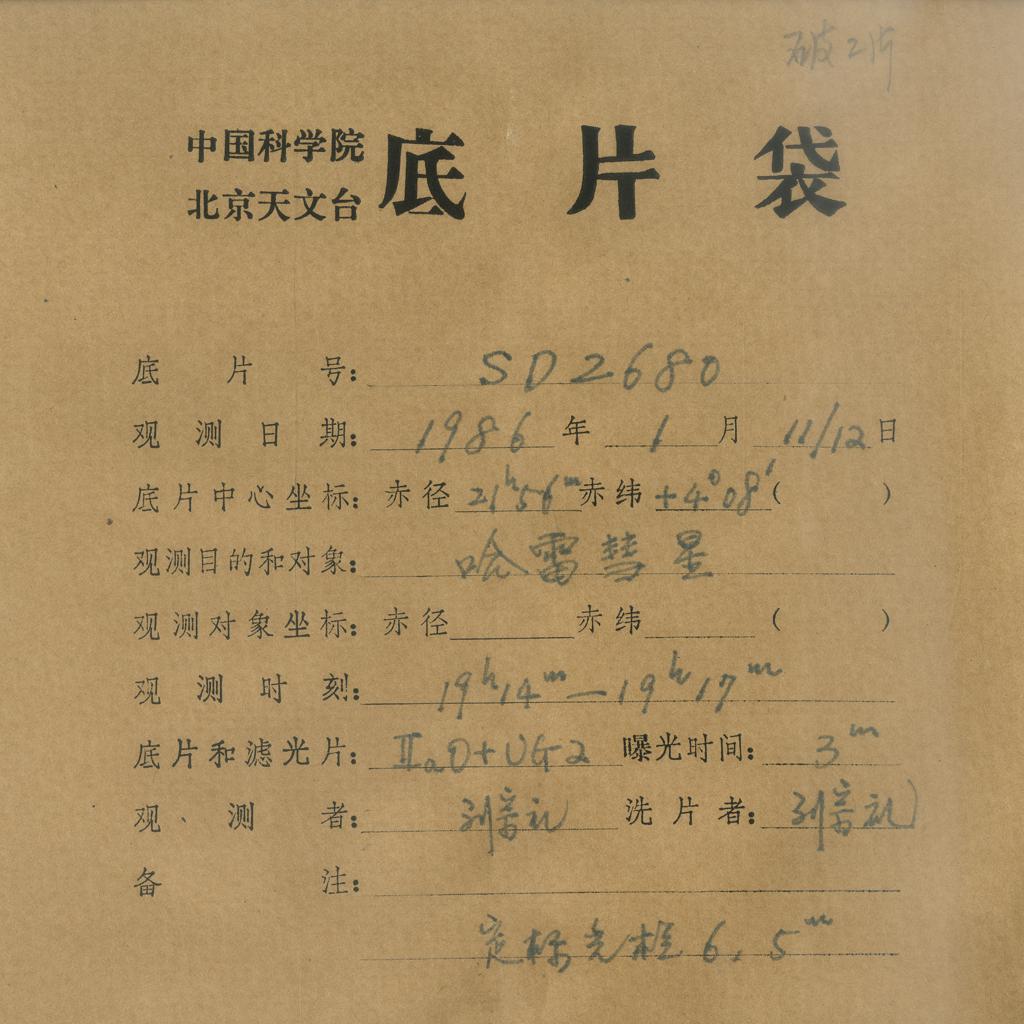 破2片
中国科学院
北京天文台
底片袋
底片号: SD2680
观测日期: 1986年1月11/12日
底片中心坐标: 赤径21ʰ56ᵐ赤纬+4°08′( )
观测目的和对象: 哈雷彗星
观测对象坐标: 赤径 赤纬 ( )
观测时刻: 19ʰ14ᵐ—19ʰ17ᵐ
底片和滤光片: ⅡaO+UG2 曝光时间: 3ᵐ
观测者: 刘 礼 洗片者: 刘 礼
备注:
定标光 6.5ᵐ